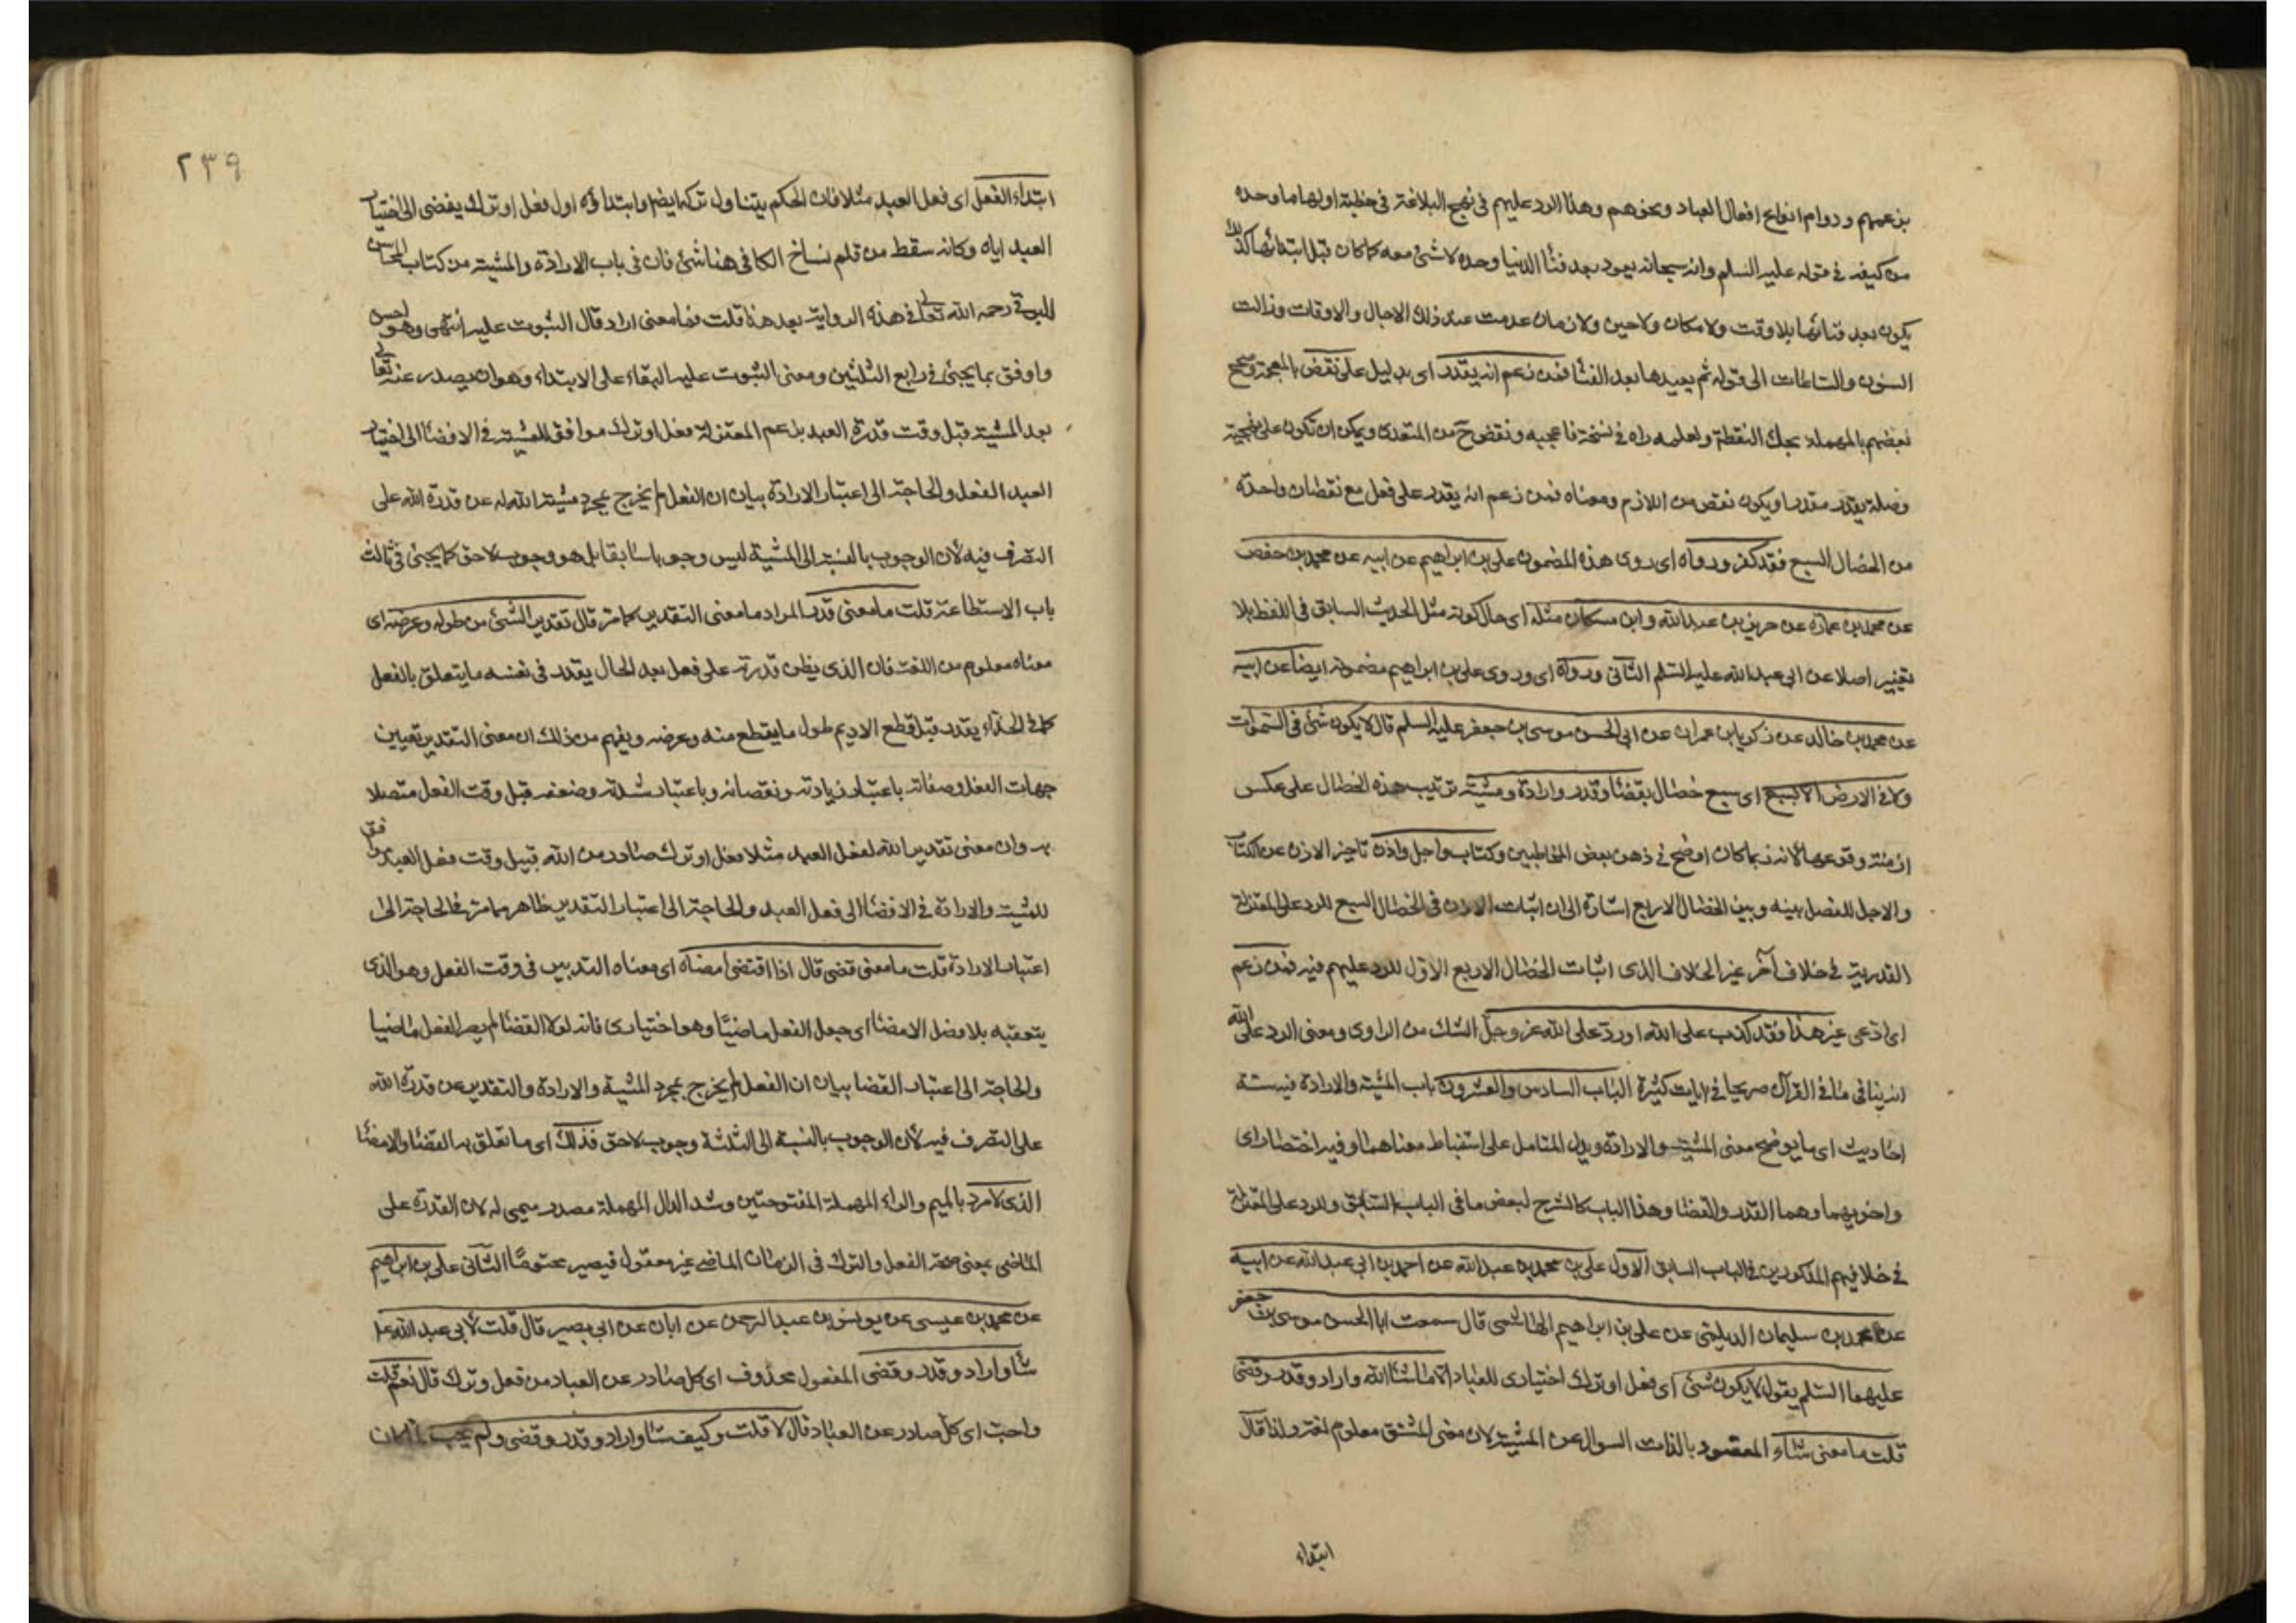 بزعمهم ودوام انواع افعال العباد ونحوهم وهذا الرد عليهم فى نهج البلاغة فى خطبة اولها ما وحده
من كيفه فى قوله عليه السلم وانه سبحانه يعود بعد فنا الدنيا وحده لا شئ معه كما كان قبل ابتدائها كذلك
يكون بعد فنائها بلا وقت ولا مكان ولا حين ولا زمان عدمت عند ذلك الاجال والاوقات وزالت
السنون والساعات الى قوله ثم يعيدها بعد الفنا فمن زعم انه يقدر اى بدليل على نقض بالمعجمة وصحح
بعضهم بالمهملة بحك النقطة ولعلمه راه فى نسخة فاعجبه ونقض ح من المتعدى ويمكن ان تكون على نهجية
وصلة يقدر مقدرا ويكون نقص من اللازم ومعناه فمن زعم انه يقدر على فعل مع نقصان واحدة
من الخصال السبع فقد كفر ورواه اى روى هذه المضمون على بن ابراهيم عن ابيه عن محمد بن حفص
عن محمد بن عمارة عن حريز بن عبد الله وابن مسكان مثله اى حال كونه مثل الحديث السابق فى اللفظ بلا
تغيير اصلا عن ابى عبد الله عليه السلم الثانى ورواه اى وروى على بن ابراهيم مضمونه ايضا عن ابيه
عن محمد بن خالد عن زكريا بن عمران عن ابى الحسن موسى بن جعفر عليه السلم قال لا يكون شئ فى السموات
ولا فى الارض الا بسبع اى سبع خصال بقضا وقدر وارادة ومشية ترتيب هذه الخصال على عكس
ازمنة وقوعها لانه ربما كان اوضح فى ذهن بعض المخاطبين وكتاب واجل واذن تاخير الاذن عن الكتاب
والاجل للفصل بينه وبين الخصال الاربع اشارة الى ان اثبات الاذن فى الخصال السبع للرد على المعتزلة
القدرية فى خلاف آخر غير الخلاف الذى اثبات الخصال الاربع الاول للرد عليهم فيه فمن زعم
اى ادعى غير هذا فقد كذب على الله او رد على الله عز وجل الشك من الراوى ومعنى الرد على الله
انه ينافى ما فى القرآن صريحا فى ايات كثيرة الباب السادس والعشرون باب المشية والارادة فيه ستة
احاديث اى ما يوضح معنى المشية والارادة ويدل المتامل على استنباط معناهما وفيه اختصار اى
واخويهما وهما القدر والقضا وهذا الباب كالشرح لبعض ما فى الباب السابق وللرد على المعتزلة
فى خلافيهم المذكورين فى الباب السابق الاول على بن محمد بن عبد الله عن احمد بن ابى عبد الله عن ابيه
عن محمد بن سليمان الديلمى عن على بن ابراهيم الهاشمى قال سمعت ابا الحسن موسى بن جعفر
عليهما السلم يقول لا يكون شئ اى فعل او ترك اختيارى للعباد الا ما شا الله واراد وقدر وقضى
قلت ما معنى شاء المقصود بالذات السوال عن المشية لان معنى المشتق معلوم لغة ولذا قال
ابتداء
٢٣٩
ابتداء الفعل اى فعل العبد مثلا فان الحكم يتناول تركه ايضا وابتداؤه اول فعل او ترك يفضى الى اختيار
العبد اياه وكانه سقط من قلم نساخ الكافى هنا شئ فان فى باب الارادة والمشية من كتاب المحاسن
للبرقى رحمه الله تعالى فى هذه الرواية بعد هذا قلت فما معنى اراد قال الثبوت عليه انتهى وهو احسن
واوفق بما يجئ فى رابع الثلثين ومعنى الثبوت عليه البقاء على الابتداء وهو ان يصدر عنه تعالى
بعد المشية قبل وقت قدرة العبد بزعم المعتزلة فعل او ترك موافق للمشية فى الافضا الى اختيار
العبد الفعل والحاجة الى اعتبار الارادة بيان ان الفعل لم يخرج بمجرد مشية الله له عن قدرة الله على
التصرف فيه لان الوجوب بالنسبة الى المشية ليس وجوبا سابقا بل هو وجوب لاحق كما يجئ فى ثالث
باب الاستطاعة قلت ما معنى قدر المراد ما معنى التقدير كما مر قال تقدير الشئ من طوله وعرضه اى
معناه معلوم من اللغة فان الذى يظن قدرته على فعل بعد الحال يقدر فى نفسه ما يتعلق بالفعل
كما فى الحذاء يقدر قبل قطع الاديم طول ما يقطع منه وعرضه ويفهم من ذلك ان معنى التقدير تعيين
جهات الفعل وصفاته باعتبار زيادته ونقصانه وباعتبار شدته وضعفه قبل وقت الفعل متصلا
به وان معنى تقدير الله لفعل العبد مثلا فعل او ترك صادر من الله قبيل وقت فعل العبد موافق
للمشية والارادة فى الافضا الى فعل العبد والحاجة الى اعتبار التقدير ظاهر مما مر فى الحاجة الى
اعتبار الارادة قلت ما معنى قضى قال اذا اقتضى امضاه اى معناه التدبير فى وقت الفعل وهو الذى
يتعقبه بلا فصل الامضا اى جعل الفعل ماضيا وهو اختيارى فانه لولا القضا لم يصر الفعل ماضيا
والحاجة الى اعتبار القضا بيان ان الفعل لم يخرج بمجرد المشية والارادة والتقدير عن قدرة الله
على التصرف فيه لان الوجوب بالنسبة الى الثلثة وجوب لاحق فذلك اى ما تعلق به القضا والامضا
الذى لا مرد بالميم والراء المهملة المفتوحتين وشد الدال المهملة مصدر ميمى له لان القدرة على
الماضى بمعنى صحة الفعل والترك فى الزمان الماضى غير معقول فيصير محتوما الثانى على بن ابراهيم
عن محمد بن عيسى عن يونس بن عبد الرحمن عن ابان عن ابى بصير قال قلت لابى عبد الله ع
شا واراد وقدر وقضى المفعول محذوف اى كل صادر عن العباد من فعل وترك قال نعم قلت
واحب اى كل صادر عن العباد قال لا قلت وكيف شا واراد وقدر وقضى ولم يحب